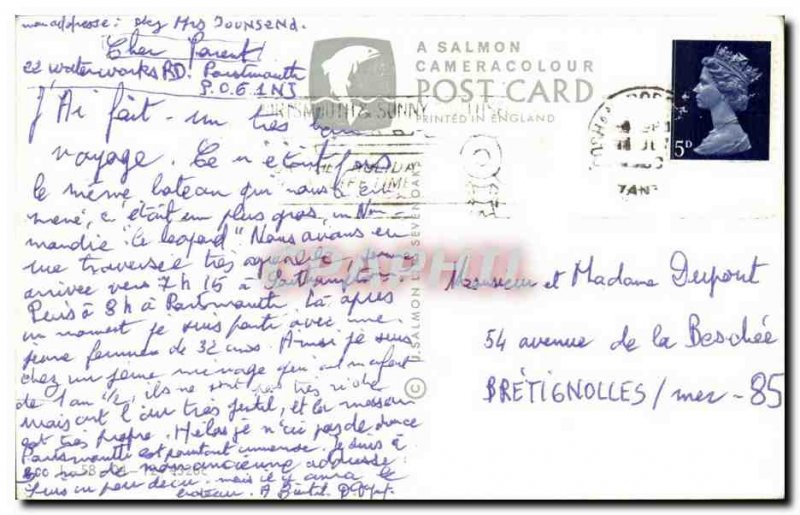 mon addresse: chez Mrs Townsend.
Cher Parent
22 Waterworks RD. Portsmouth
P.O.6 1NJ
J'Ai fait un très bon
voyage. Ce n'était pas
le même bateau qui nous a em
mené, c'était un plus gros, un Nor-
mandie "le leopard" Nous avons eu
une traversée très agréable,
arrivée vers 7h 15 à Southampton
Puis à 8h à Portsmouth. Là après
un moment je suis partie avec une
jeune femme de 32 ans. Ainsi je suis
chez un jeune ménage qui ont un enfant
de 1 an 1/2, ils ne sont pas très riche
mais ont l'air très gentil, et la maison
est très propre. Hélas je n'ai pas de chance
Portsmouth est pourtant immense. Je suis à
800 m de mon ancienne addresse.
suis un peu déçu mais il y aura le
A Bientôt
A SALMON
CAMERACOLOUR
POST CARD
PRINTED IN ENGLAND
PORTSMOUTH & SUNNY
HOLIDAY
LIFETIME
5D
© J. SALMON LTD SEVENOAKS
CPAPHIL
Monsieur et Madame Dupont
54 avenue de la Beschée
BRÉTIGNOLLES/mer - 85